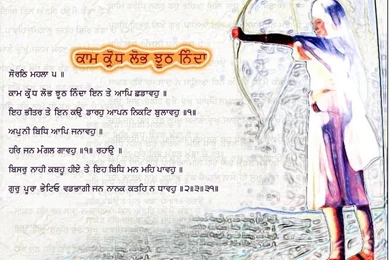 ਕਾਮ ਕ੍ਰੋਧ ਲੋਭ ਝੂਠ ਨਿੰਦਾ
ਸੋਰਠਿ ਮਹਲਾ ੫ ॥
ਕਾਮ ਕ੍ਰੋਧ ਲੋਭ ਝੂਠ ਨਿੰਦਾ ਇਨ ਤੇ ਆਪਿ ਛਡਾਵਹੁ ॥
ਇਹ ਭੀਤਰ ਤੇ ਇਨ ਕਉ ਡਾਰਹੁ ਆਪਨ ਨਿਕਟਿ ਬੁਲਾਵਹੁ ॥੧॥
ਅਪੁਨੀ ਬਿਧਿ ਆਪਿ ਜਨਾਵਹੁ ॥
ਹਰਿ ਜਨ ਮੰਗਲ ਗਾਵਹੁ ॥੧॥ ਰਹਾਉ ॥
ਬਿਸਰੁ ਨਾਹੀ ਕਬਹੂ ਹੀਏ ਤੇ ਇਹ ਬਿਧਿ ਮਨ ਮਹਿ ਪਾਵਹੁ ॥
ਗੁਰੁ ਪੂਰਾ ਭੇਟਿਓ ਵਡਭਾਗੀ ਜਨ ਨਾਨਕ ਕਤਹਿ ਨ ਧਾਵਹੁ ॥੨॥੩॥੩੧॥